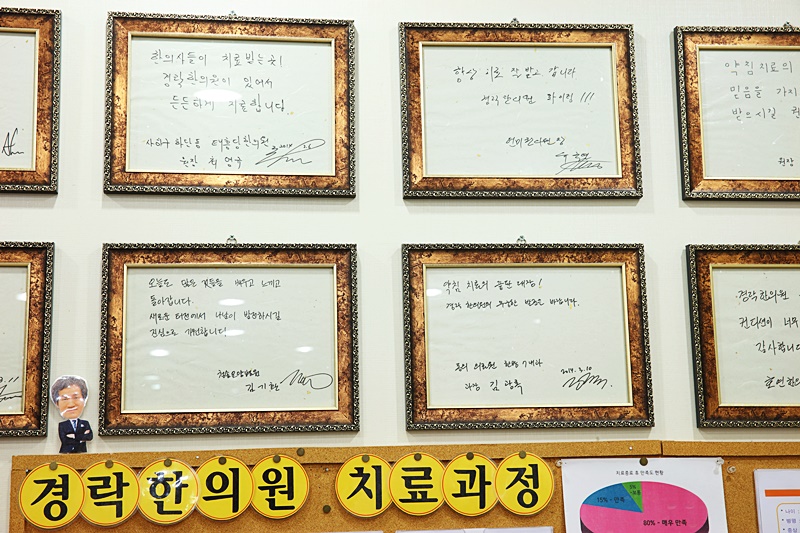 한의사들이 치료받는곳!
경락한의원이 있어서
든든하게 치료합니다
사하구 하단동 태흥당한의원
원장 최영국
항상 치료 잘 받고 갑니다
경락한의원 화이팅!!!
약침치료의
믿음을 가지
받으시길
원장
오늘도 많은 것들을 배우고 느끼고
돌아갑니다.
새로운 터전에서 나날이 발전하시길
진심으로 기원합니다!
김기환
약침 치료의 끝판 대장!
경락 한의원의 무궁한 발전을 바랍니다.
동의의료원 한방 7내과
2014. 3. 10
과장 김광록
경락한의원
컨디션이 너무
감사합니다
경락한의원 치료과정
치료종료 후 만족도 현황
5%
15% - 만족
80% - 매우 만족
나이 :
불편
증상